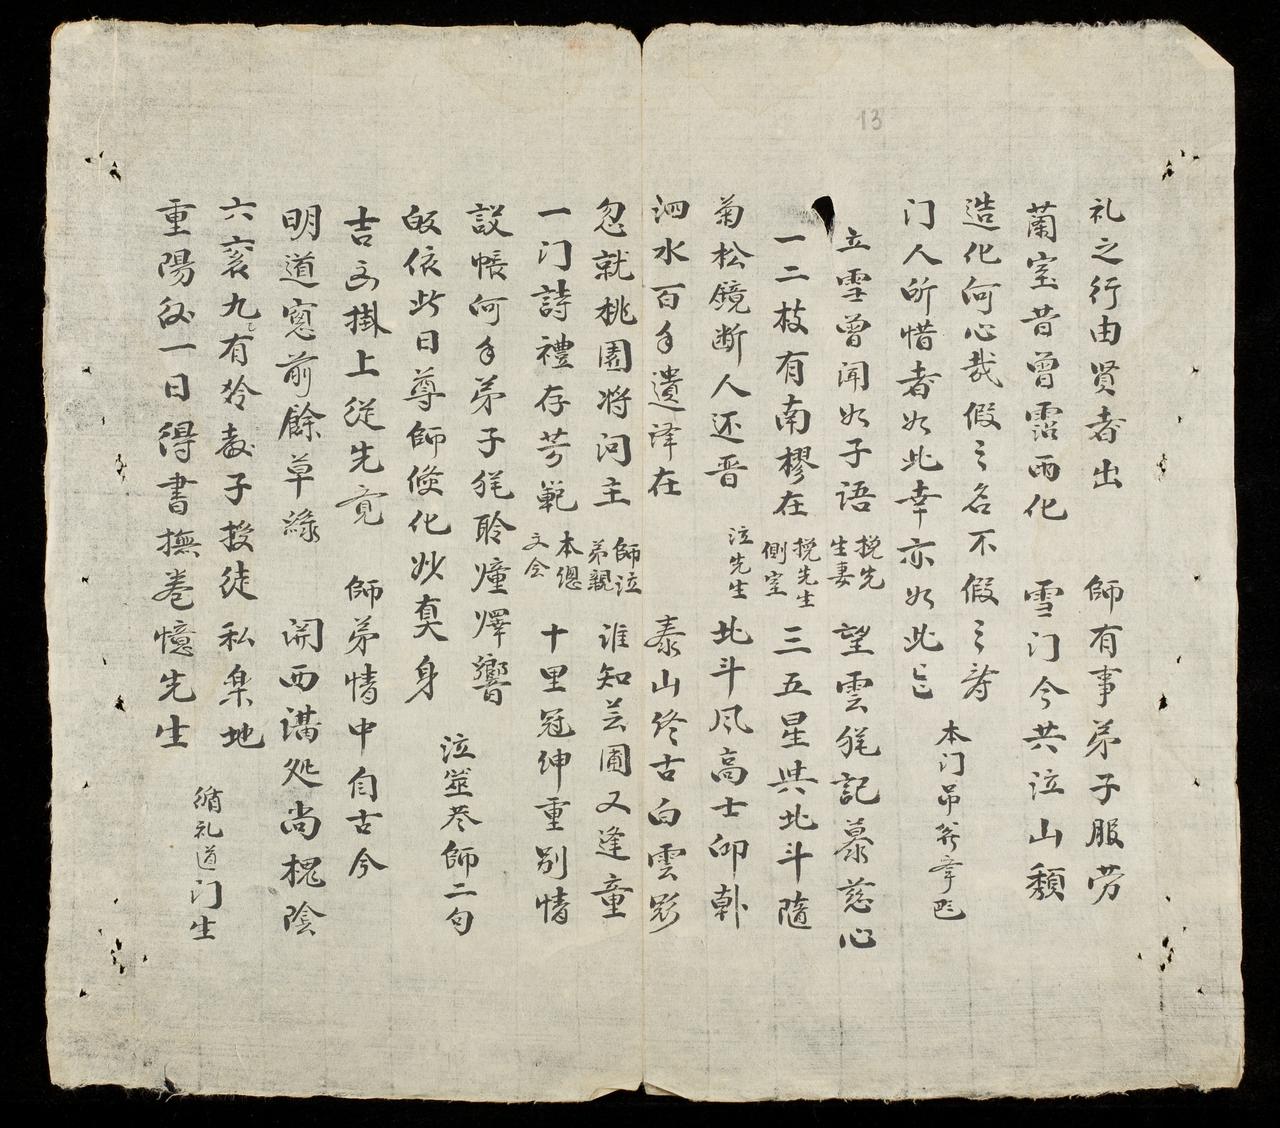 13
礼之行由贤者出 師有事弟子服劳
蘭室昔曾霑雨化 雪门今共泣山頹
造化何心哉假之名不假之寿
门人所惜者如此幸亦如此亡 本门吊
立雪曾闻如子語 挽先生妻 望雲能記慕慈心
一二枝有南樛在 挽先生側室 三五星共北斗隨
菊松鏡断人还晋 泣先生 北斗风高士仰
泗水百年遺泽在 泰山终古白雲影
忽就桃園将问主 師泣弟親 谁知芸圃又逢童
一门詩禮存芳範 本總文会 十里冠绅重别情
設帳何年弟子能聆爗響
皈依此日尊師倐化妙真身 泣 師二句
吉凶掛上従先竟 師弟情中自古今
明道窓前餘草綠 開西講处尚槐陰
六袠九有 教子授徒私楽地
重陽後一日得書撫卷憶先生 循礼道门生